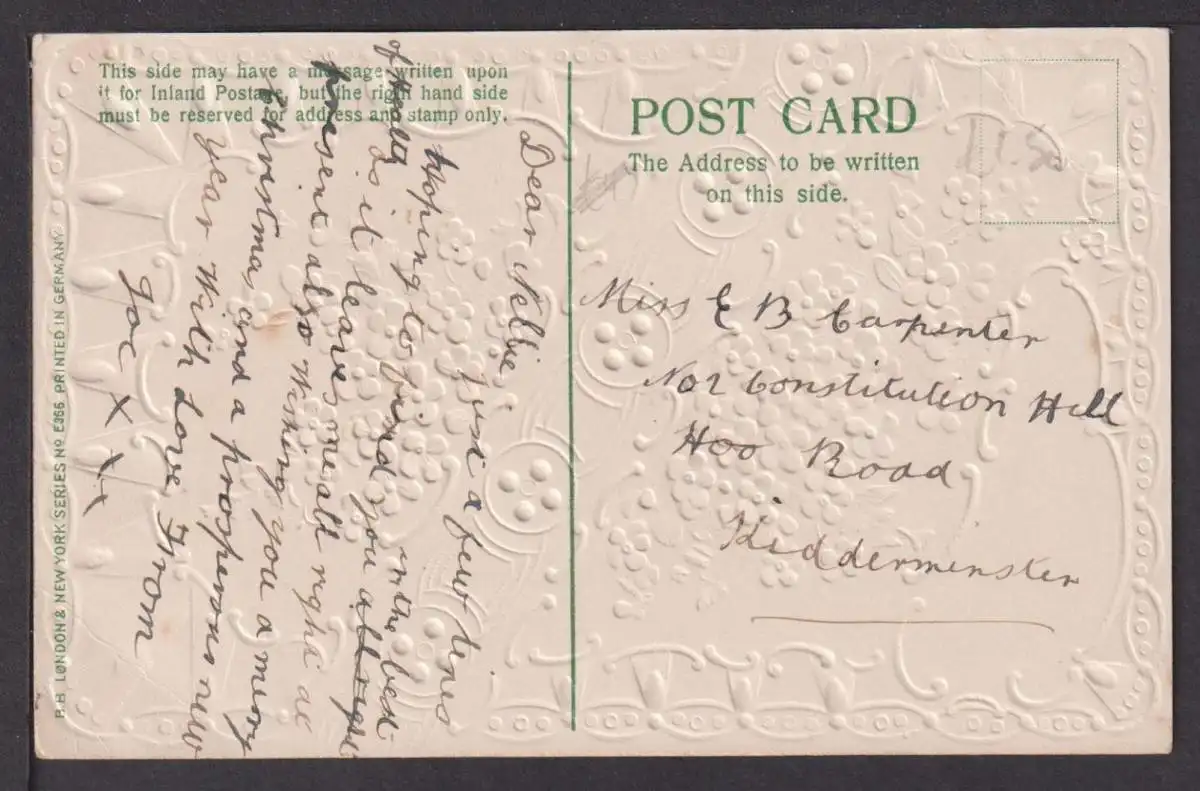 This side may have a message written upon
it for Inland Postage, but the right hand side
must be reserved for address and stamp only.
POST CARD
The Address to be written
on this side.
11.50
Dear Nellie
Just a few lines
Hoping to find you all right
in the bed
of Health
as it leaves me all right at
present also Wishing you a merry
Christmas and a prosperous new
year With Love From
Joe X X X
Miss E B Carpenter
No 2 Constitution Hill
Hoo Road
Kidderminster
B.B LONDON & NEW YORK SERIES NO E366 PRINTED IN GERMANY